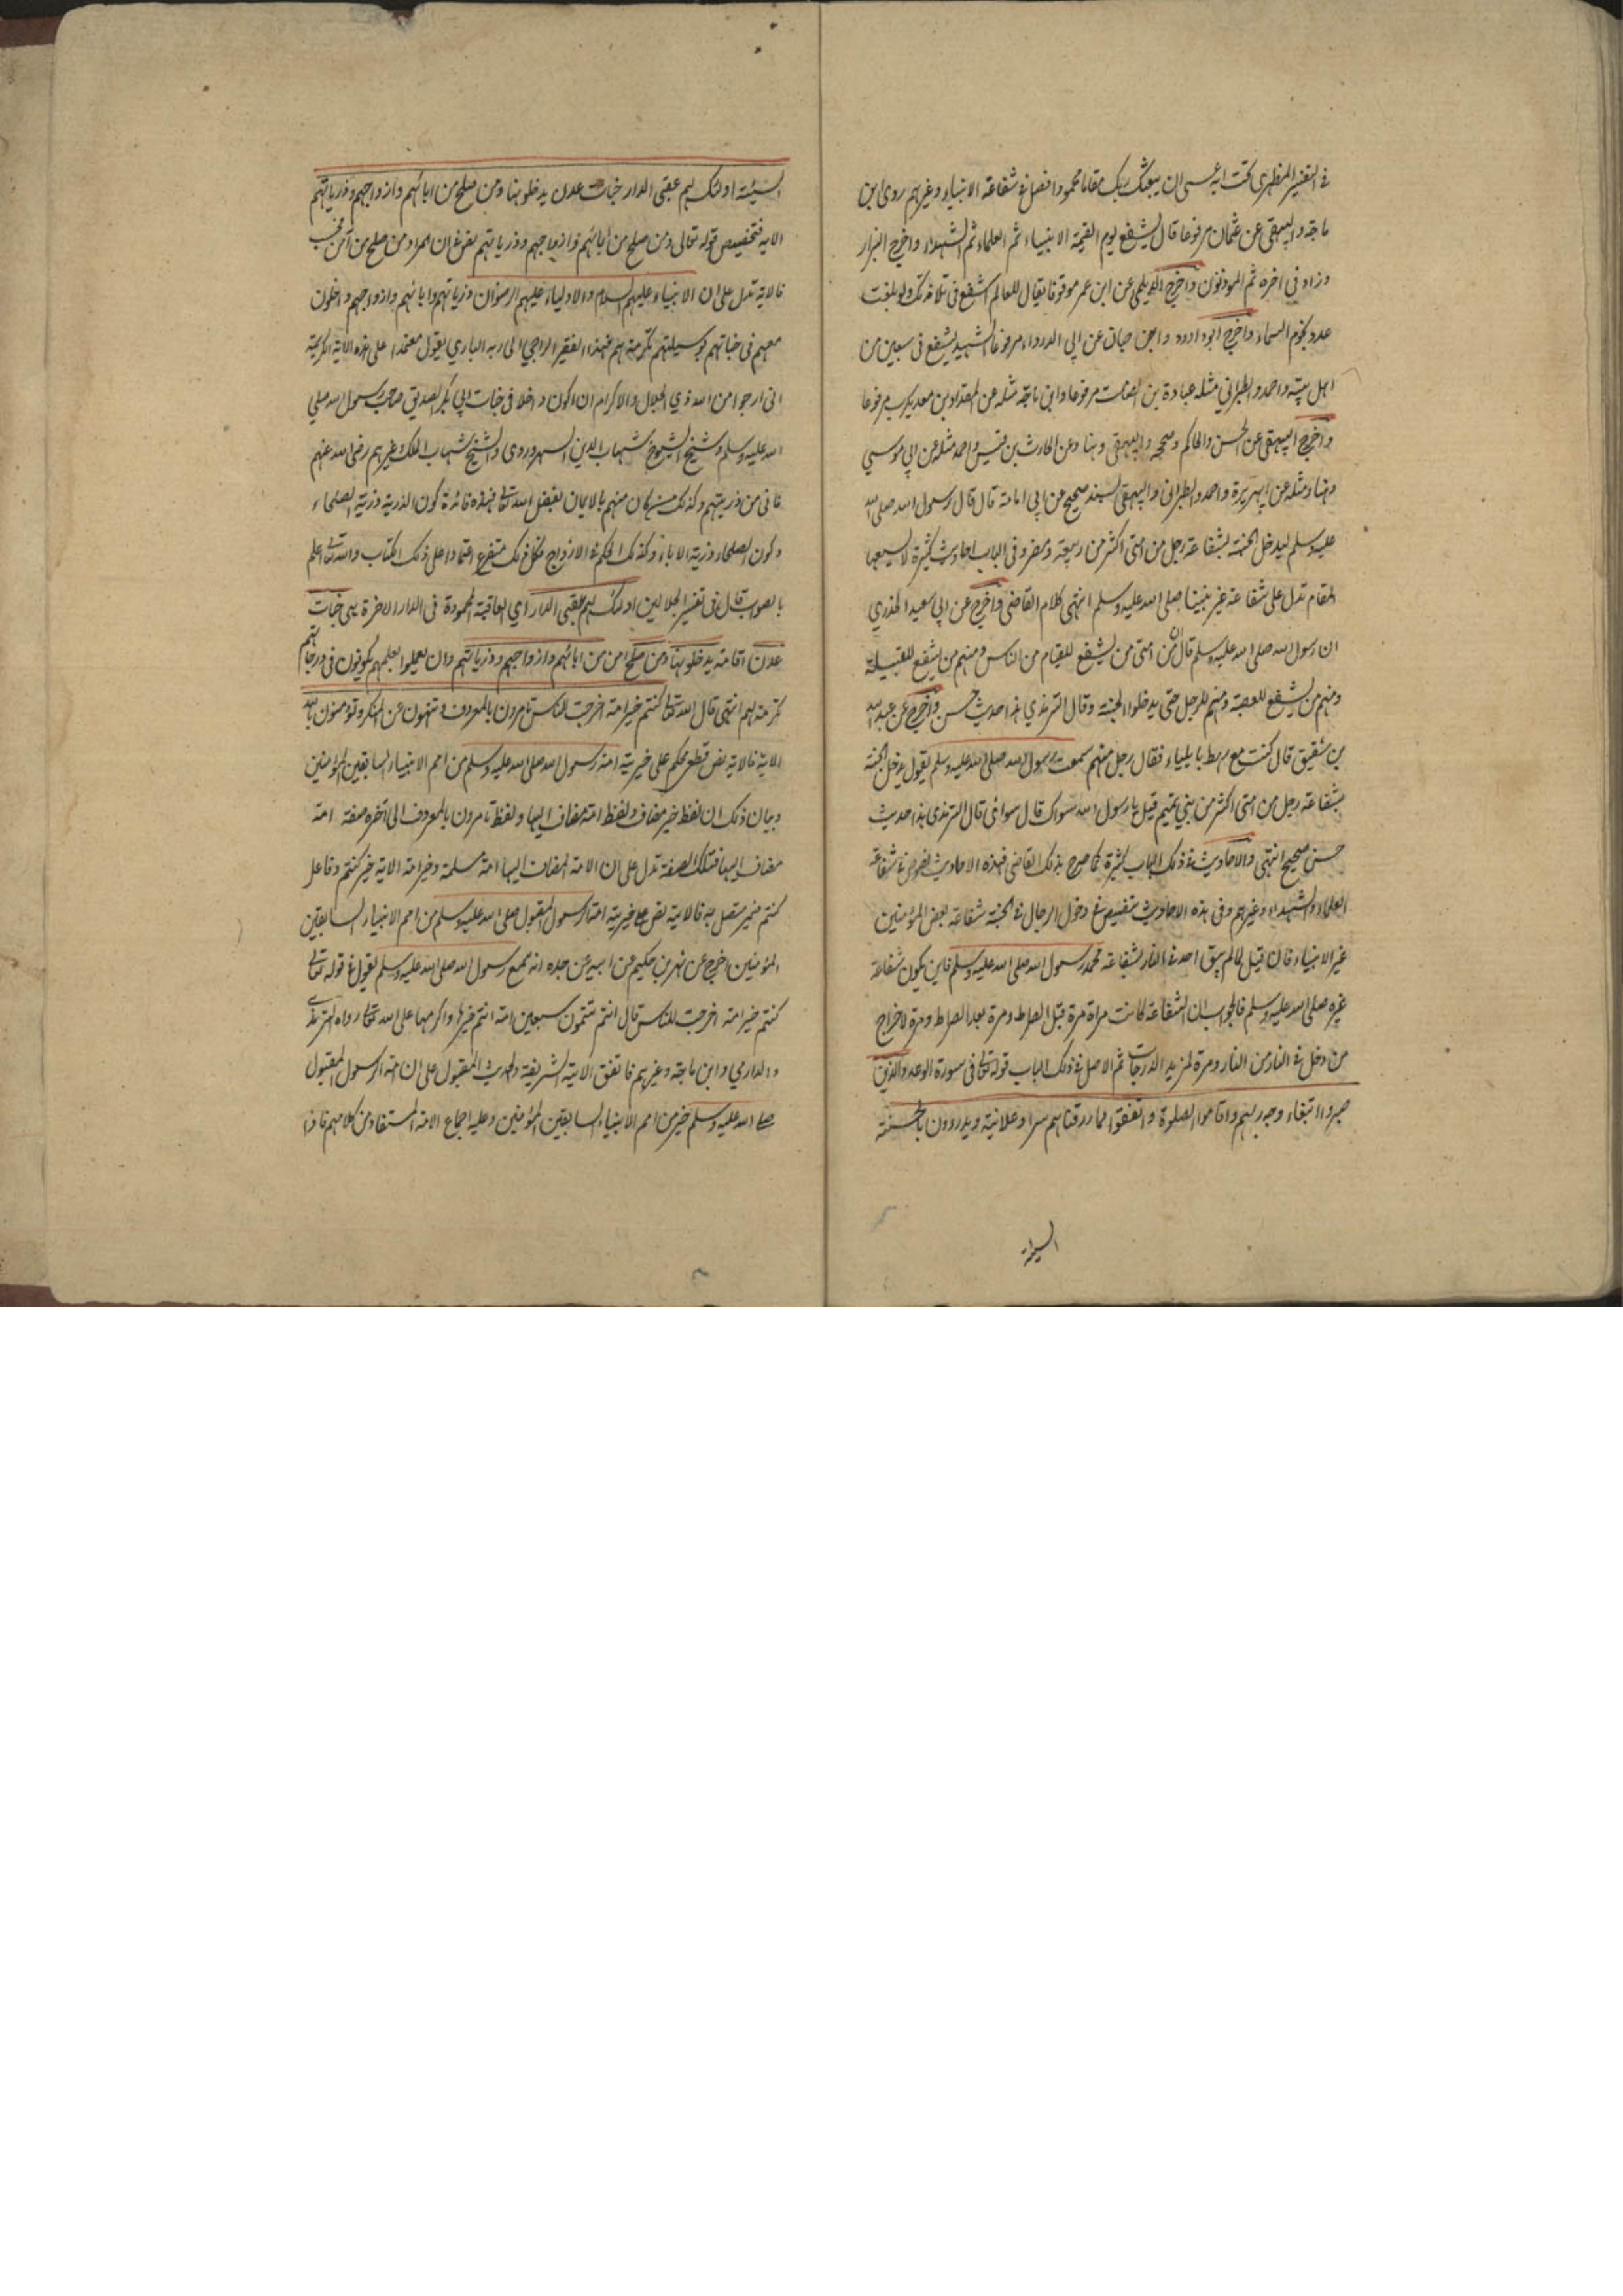 في التفسير المظهري تحت اية عسى ان يبعثك ربك مقاما محمودا فصل في شفاعة الانبياء وغيرهم روى ابن
ماجة والبيهقي عن عثمان مرفوعا قال يشفع يوم القيمة الانبياء ثم العلماء ثم الشهداء واخرج البزار
وزاد في اخره ثم الموذنون واخرج الديلمي عن ابن عمر موقوفا يقال للعالم اشفع في تلامذتك ولو بلغت
عدد نجوم السماء واخرج ابوداود وابن حبان عن ابي الدرداء مرفوعا الشهيد يشفع في سبعين من
اهل بيته واحمد والطبراني مثله عبادة بن الصامت مرفوعا وابن ماجة مثله عن المقداد بن معد يكرب مرفوعا
واخرج البيهقي عن الحسن والحاكم وصححه والبيهقي وهناد عن الحارث بن قيس واحمد مثله عن ابي موسي
وهناد مثله عن ابي هريرة واحمد والطبراني والبيهقي بسند صحيح عن ابي امامة قال قال رسول الله صلى الله
عليه وسلم ليدخل الجنة بشفاعة رجل من امتى اكثر من ربيعة ومضر وفي الباب احاديث كثيرة لا يسعها
المقام تدل على شفاعة غير نبينا صلى الله عليه وسلم انتهى كلام القاضي واخرج عن ابي سعيد الخدري
ان رسول الله صلى الله عليه وسلم قال ان من امتى من يشفع للفيام من الناس ومنهم من يشفع للقبيلة
ومنهم من يشفع للعصبة ومنهم للرجل حتى يدخلوا الجنة وقال الترمذي هذا حديث حسن واخرج عن عبد الله
بن شقيق قال كنت مع رهط بايلياء فقال رجل منهم سمعت رسول الله صلى الله عليه وسلم يقول يدخل الجنة
بشفاعة رجل من امتى اكثر من بني تميم قيل يا رسول الله سواك قال سوائ قال الترمذي هذا حديث
حسن صحيح انتهى والاحاديث في ذلك الباب كثيرة كما صرح بذلك القاضي فهذه الاحاديث نصوص في شفاعة
العلماء والشهداء وغيرهم وفي هذه الاحاديث تنصيص في دخول الرجال في الجنة شفاعة بعض المؤمنين
غير الانبياء فان قيل لما لم يبق احد في النار بشفاعة محمد رسول الله صلى الله عليه وسلم فاين يكون شفاعة
غيره صلى الله عليه وسلم فالجواب ان الشفاعة كانت مراة مرة قبل الصراط ومرة بعد الصراط ومرة لاخراج
من دخل في النار من النار ومرة لمزيد الدرجات ثم الاصل في ذلك الباب قوله تعالى في سورة الرعد والذين
صبروا ابتغاء وجه ربهم واقاموا الصلوة وانفقوا مما رزقناهم سرا وعلانية ويدرءون بالحسنة
السيئة
السيئة اولئك لهم عقبى الدار جنات عدن يدخلونها ومن صلح من ابائهم وازواجهم وذرياتهم
الاية فتخصيص قوله تعالى ومن صلح من ابائهم وازواجهم وذرياتهم يعرف ان المراد من صلح من آمن فحسب
فالاية تدل على ان الانبياء عليهم السلام والاولياء عليهم الرضوان وذرياتهم وابائهم وازواجهم داخلون
معهم في جناتهم بوسيلتهم تكرمة لهم فهذا الفقير الراجي الى ربه الباري يقول معتمدا على هذه الاية الكريمة
انى ارجو من الله ذي الجلال والاكرام ان اكون داخلا في جنات ابي بكر الصديق صاحب رسول الله صلي
الله عليه وسلم وشيخ الشيوخ شهاب الدين السهروردي والشيخ شهاب الملك وغيرهم رضى الله عنهم
فانى من ذريتهم وكذلك من كان منهم بالايمان بفضل الله تعالى فهذه فائدة كون الذرية ذرية الصلحاء
وكون الصلحاء ذرية الاباء وكذلك الحكم في الازواج فكل ذلك متفرع اعتمادا على ذلك الكتاب والله تعالى اعلم
بالصواب قال في تفسير الجلالين اولئك لهم عقبى الدار اي العاقبة المحمودة في الدار الاخرة هي جنات
عدن اقامة يدخلونها ومن صلح امن من ابائهم وازواجهم وذرياتهم وان لم يعملوا بعملهم يكونون في درجاتهم
تكرمة لهم انتهى قال الله تعالى كنتم خير امة اخرجت للناس تامرون بالمعروف وتنهون عن المنكر وتؤمنون بالله
الاية فالاية نص قطع محكم على خيرية امة رسول الله صلى الله عليه وسلم من امم الانبياء السابقين المؤمنين
وبيان ذلك ان لفظ خير مضاف ولفظ امة مضاف اليها ولفظ تامرون بالمعروف الى آخره صفة امة
مضاف اليها فتلك الصفة تدل على ان الامة المضاف اليها امة مسلمة وخير امة الاية خير كنتم وفاعل
كنتم ضمير متصل به فالاية نص على خيرية امة رسول المقبول صلى الله عليه وسلم من امم الانبياء السابقين
المؤمنين اخرج عن بهز بن حكيم عن ابيه عن جده انه سمع رسول الله صلى الله عليه وسلم يقول في قوله تعالى
كنتم خير امة اخرجت للناس قال انتم تتمون سبعين امة انتم خيرها واكرمها على الله تعالى رواه الترمذي
والدارمي وابن ماجة وغيرهم فاتفق الاية الشريفة والحديث المقبول على ان امة الرسول المقبول
صلى الله عليه وسلم خير من امم الانبياء السابقين المؤمنين وعليه اجماع الامة المستفاد من كلامهم فاذا